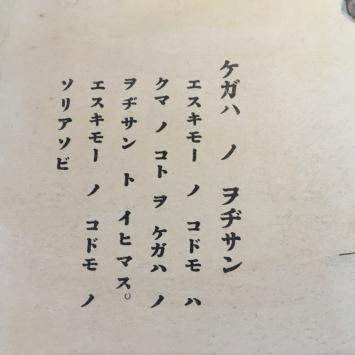 ケガハ ノ ヲヂサン
エスキモー ノ コドモ ハ
クマ ノ コト ヲ ケガハ ノ
ヲヂサン ト イヒマス。
エスキモー ノ コドモ ノ
ソリアソビ